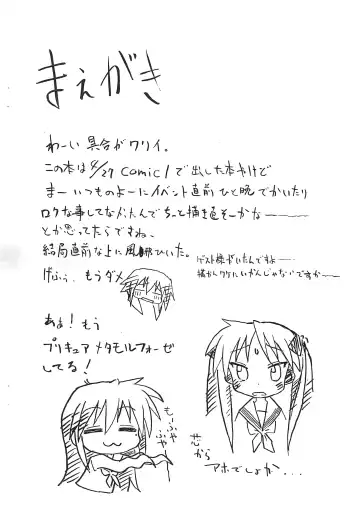 まえがき
わーい 具合がワリイ。
この本は 4/29 comic1で出した本やけど
まー いつものよーにイベント直前 ひと晩でかいたり
ロクな事してなかったんで ちーと描き直そーかなーーー
とか思ってたらですね、
結局直前な上に風邪ひいた。
げふぅ、もうダメ
ゲスト様がいたんですよー…
描かんワケにいかんじゃないですかーー
あぁ!もう
プリキュアメタモルフォーゼ
してる!
もーふや
ふや
芯
から
アホでしょか...